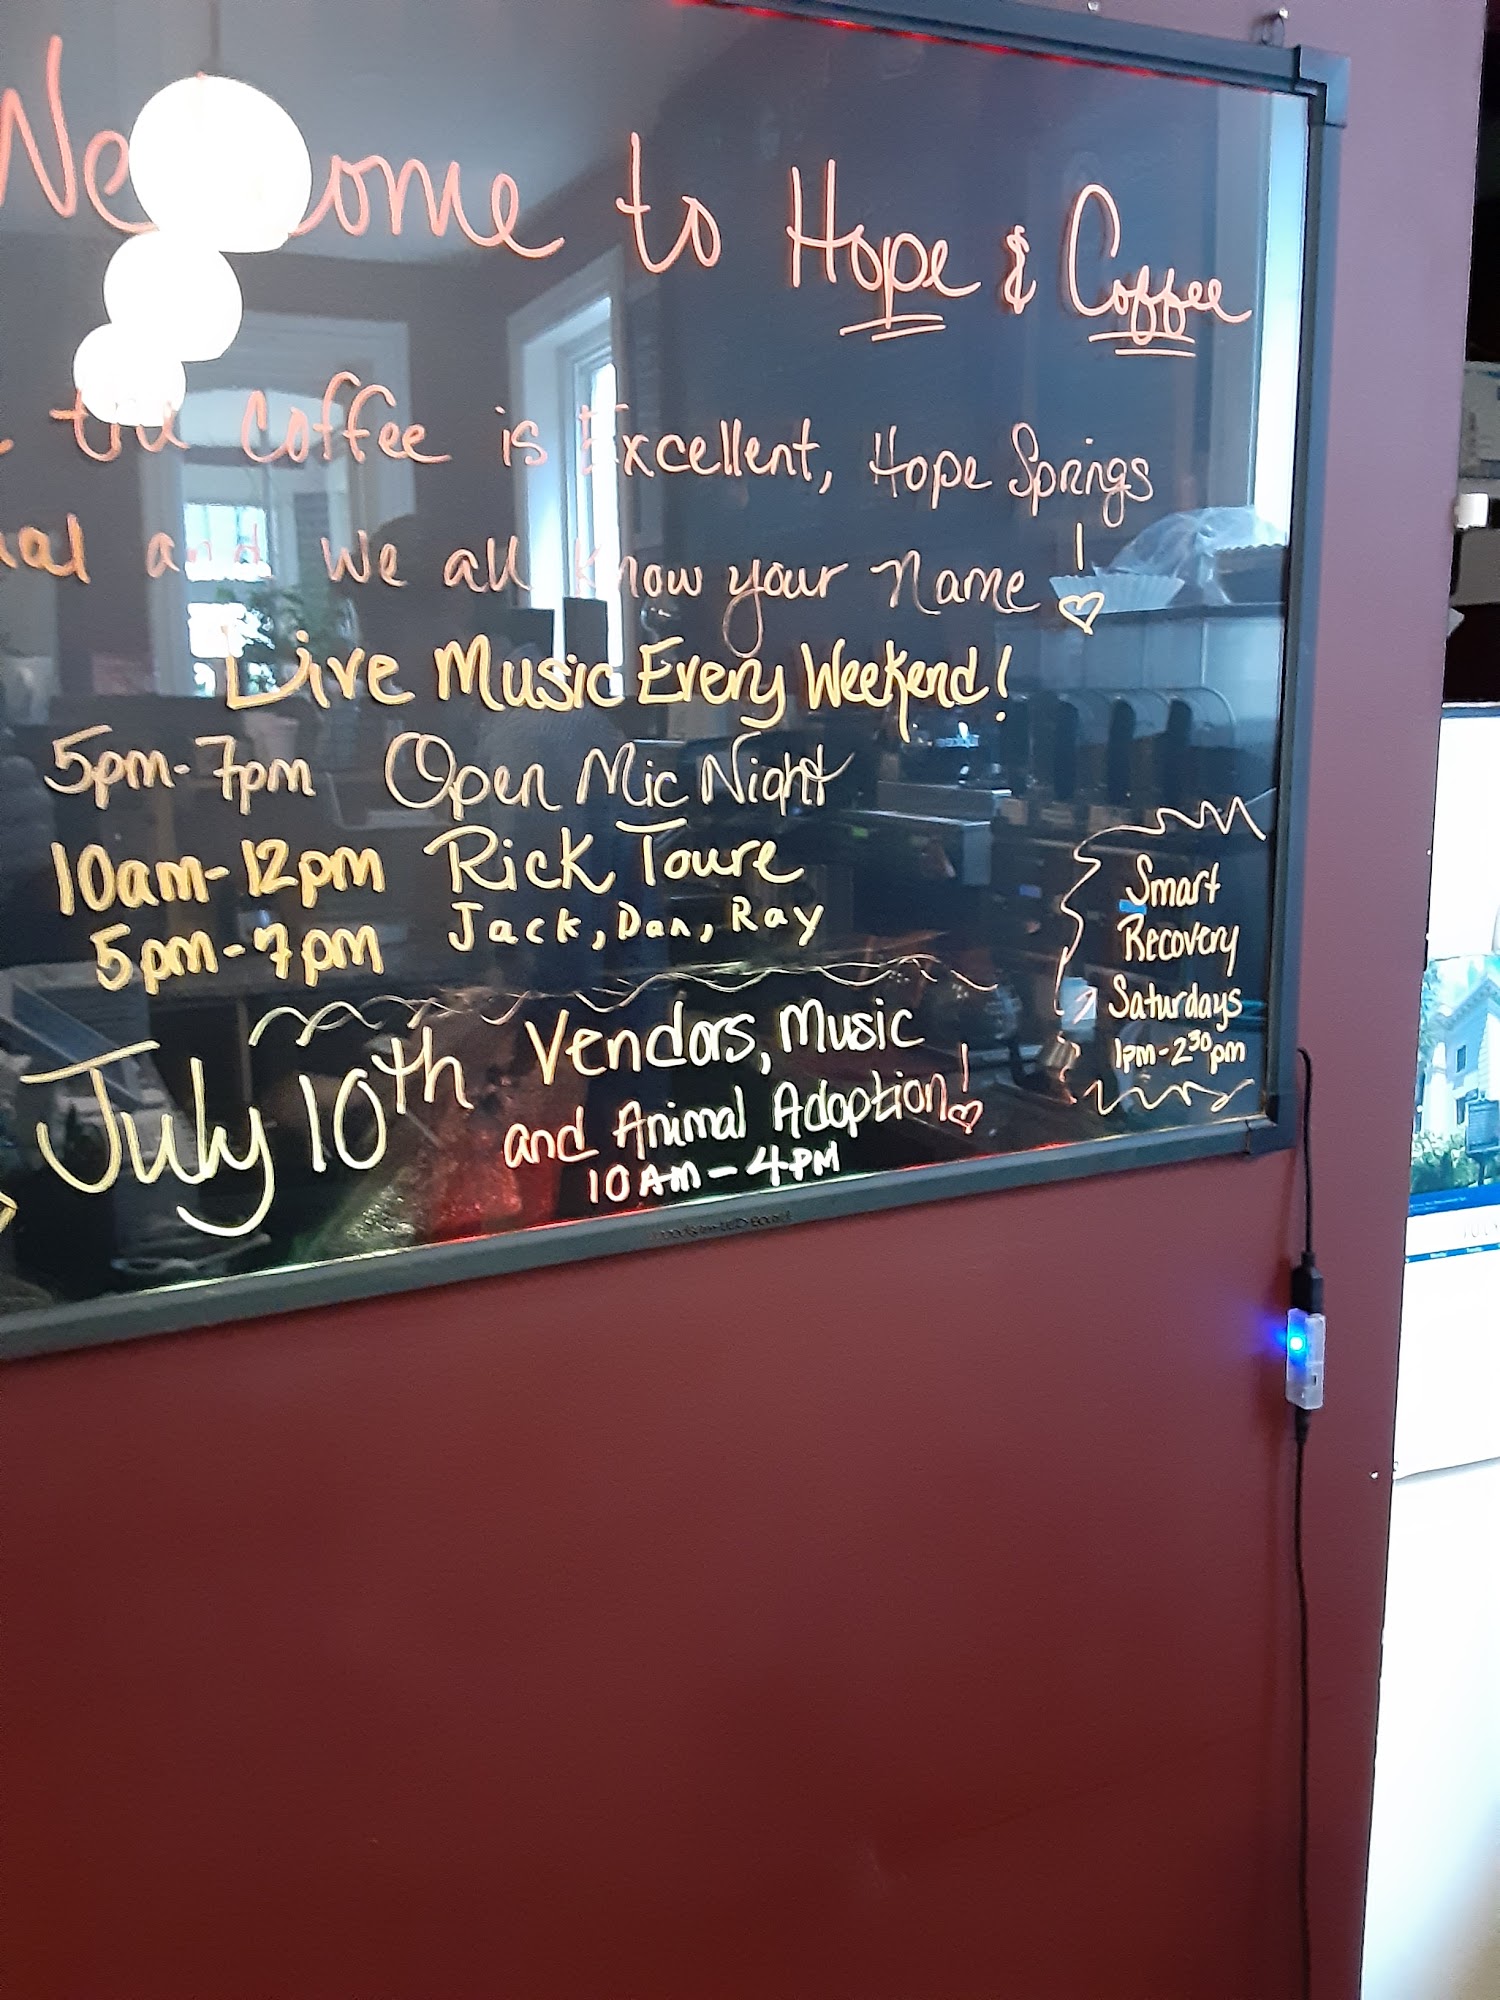 Welcome to Hope & Coffee
the coffee is Excellent, Hope Springs
and we all know your Name!
Live Music Every Weekend!
5pm-7pm Open Mic Night
10am-12pm Rick Toure
5pm-7pm Jack, Dan, Ray
July 10th Vendors, Music
and Animal Adoption!
10AM-4PM
Smart
Recovery
Saturdays
1pm-230pm